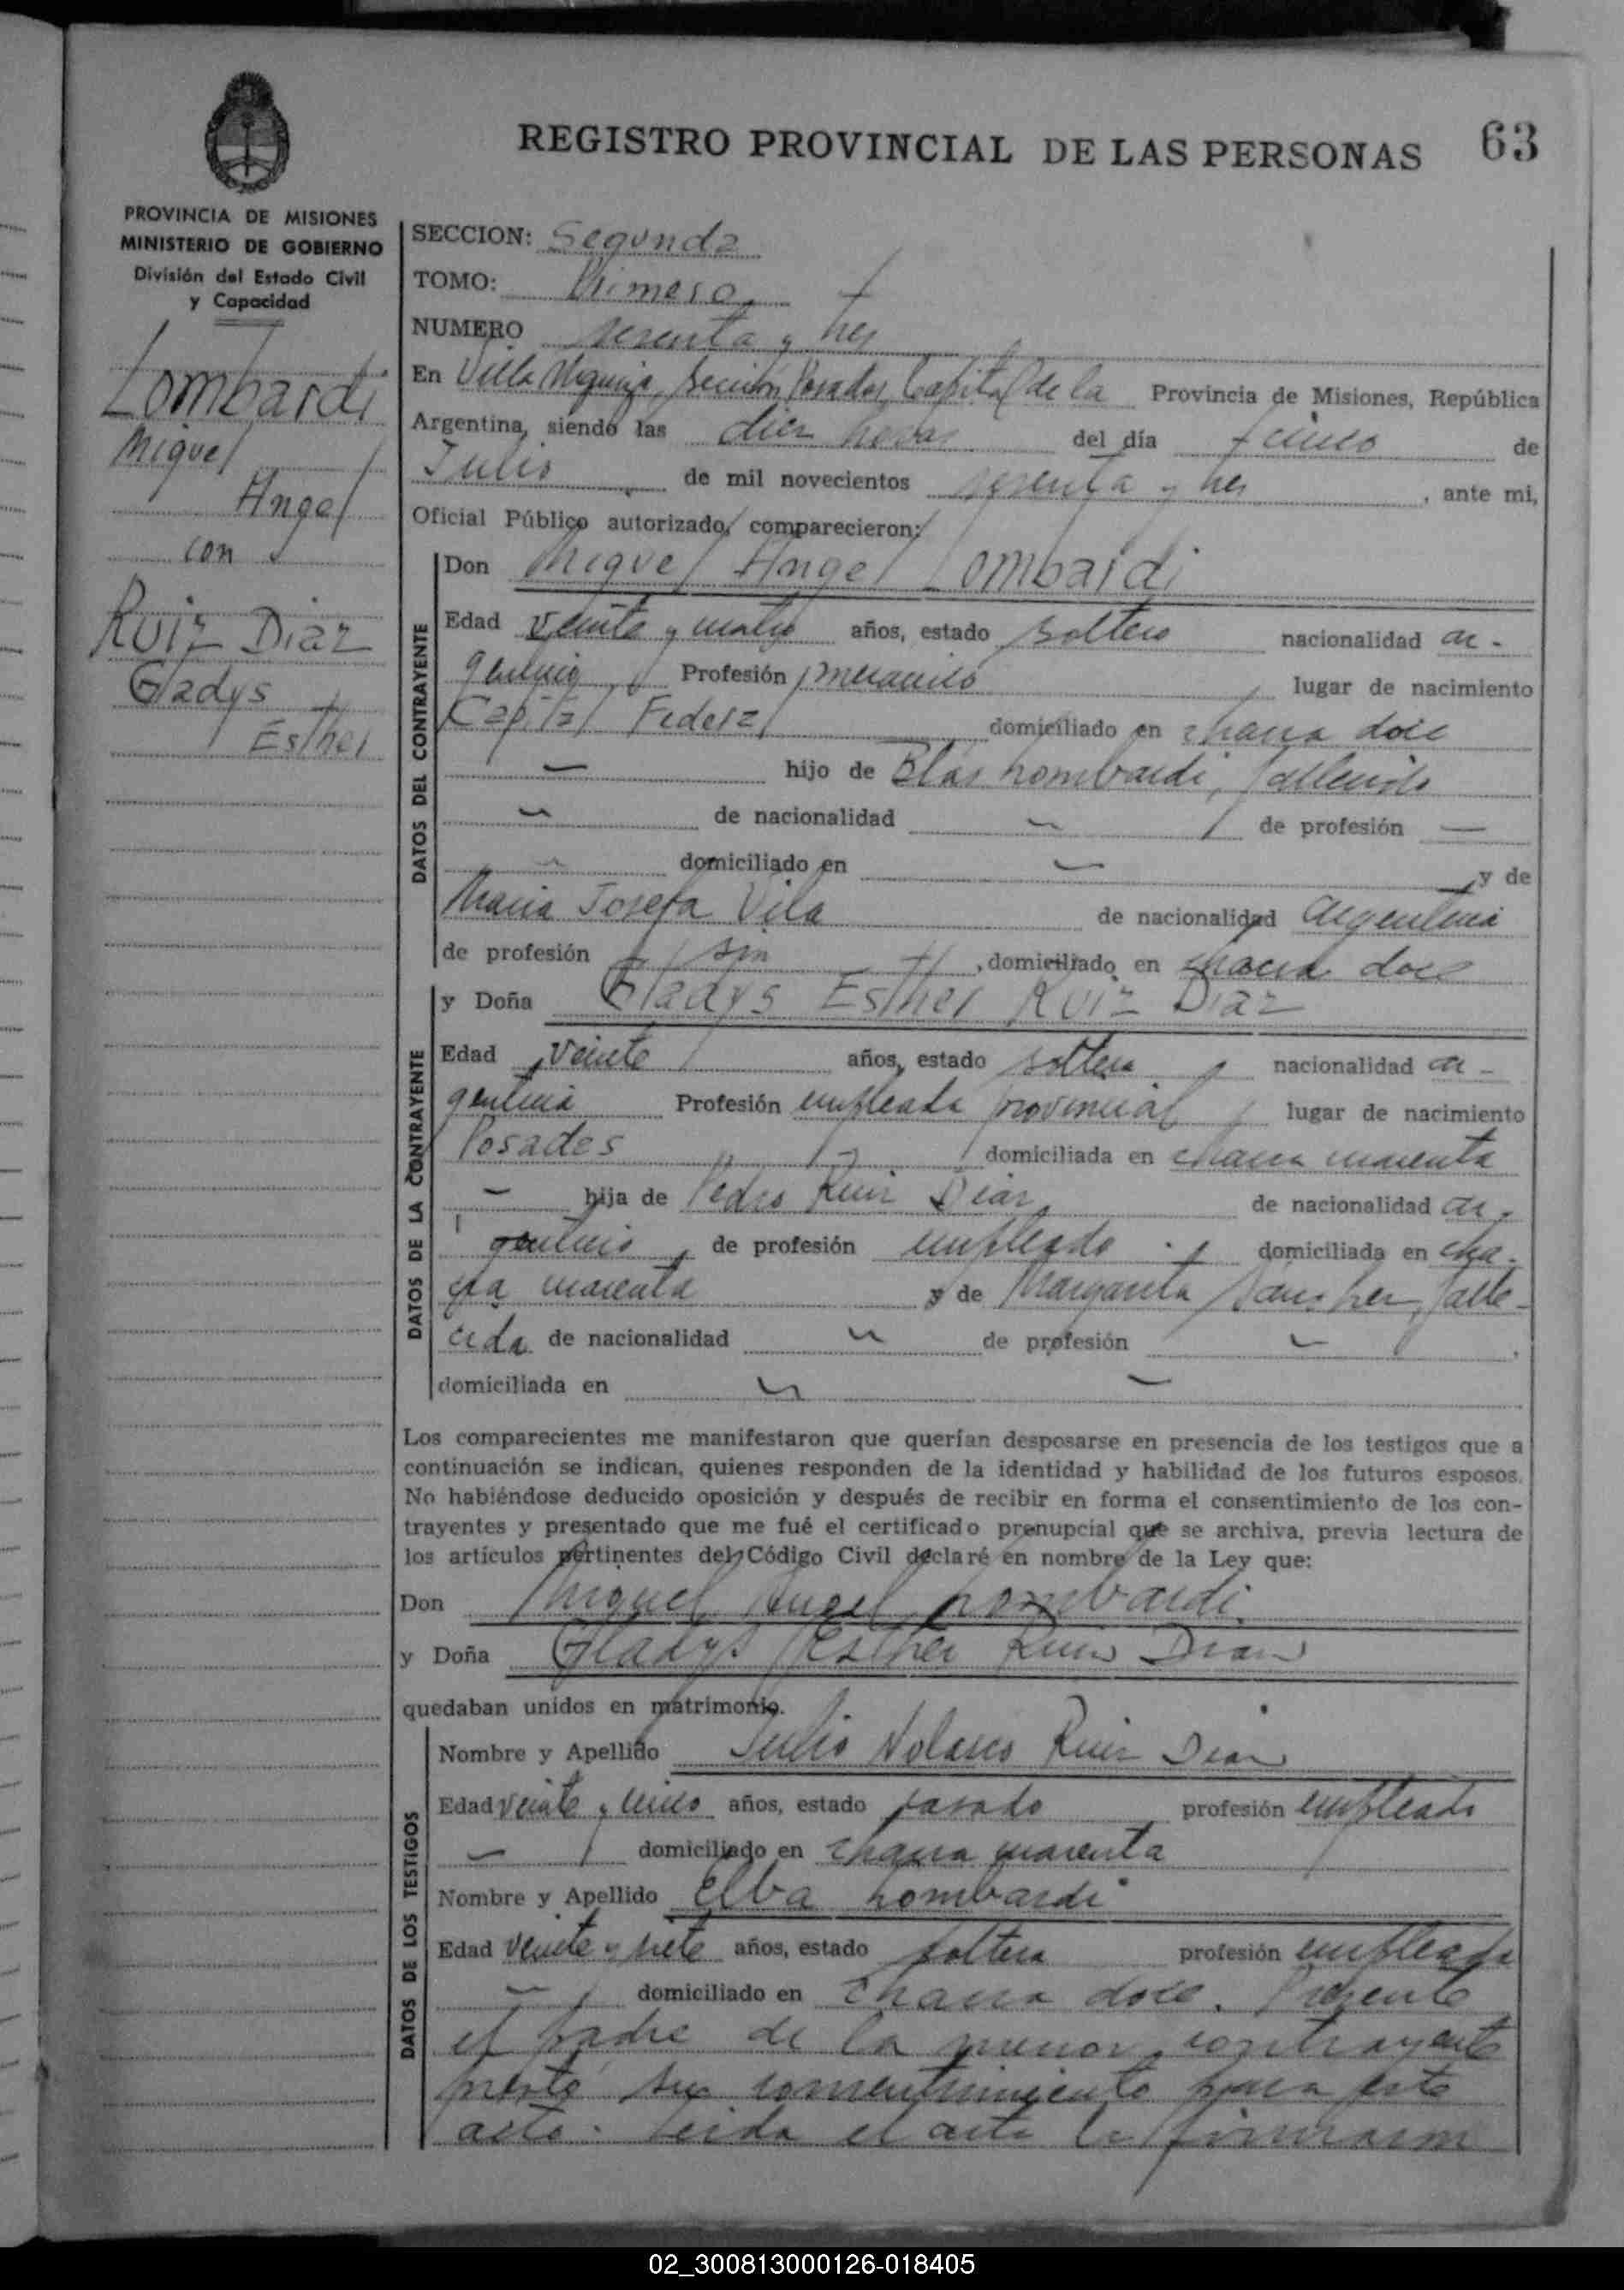 REGISTRO PROVINCIAL DE LAS PERSONAS 63
PROVINCIA DE MISIONES
MINISTERIO DE GOBIERNO
División del Estado Civil
y Capacidad
Lombardi
Miguel
Angel
con
Ruiz Diaz
Gladys
Esther
SECCION: Segunda
TOMO: Primero
NUMERO sesenta y tres
En Villa Urquiza, Sección Posadas, Capital de la Provincia de Misiones, República
Argentina, siendo las diez horas del día cinco de
Julio de mil novecientos sesenta y tres, ante mi,
Oficial Público autorizado, comparecieron:
DATOS DEL CONTRAYENTE
Don Miguel Angel Lombardi
Edad veinte y cuatro años, estado soltero nacionalidad ar-
gentino Profesión mecanico lugar de nacimiento
Capital Federal domiciliado en chacra doce
— hijo de Blas Lombardi, fallecido
— de nacionalidad — de profesión —
— domiciliado en — y de
Maria Josefa Vila de nacionalidad argentina
de profesión sin, domiciliado en chacra doce
DATOS DE LA CONTRAYENTE
y Doña Gladys Esther Ruiz Diaz
Edad veinte años, estado soltera nacionalidad ar-
gentina Profesión empleada provincial lugar de nacimiento
Posadas domiciliada en chacra cuarenta
— hija de Pedro Ruiz Diaz de nacionalidad ar-
gentino, de profesión empleado domiciliada en cha-
cra cuarenta y de Margarita Sanchez, falle-
cida de nacionalidad — de profesión —,
domiciliada en — —
Los comparecientes me manifestaron que querían desposarse en presencia de los testigos que a
continuación se indican, quienes responden de la identidad y habilidad de los futuros esposos.
No habiéndose deducido oposición y después de recibir en forma el consentimiento de los con-
trayentes y presentado que me fué el certificado prenupcial que se archiva, previa lectura de
los artículos pertinentes del Código Civil declaré en nombre de la Ley que:
Don Miguel Angel Lombardi
y Doña Gladys Esther Ruiz Diaz
quedaban unidos en matrimonio.
DATOS DE LOS TESTIGOS
Nombre y Apellido Julio Nolasco Ruiz Diaz
Edad veinte y cinco años, estado casado profesión empleado
— domiciliado en chacra cuarenta
Nombre y Apellido Elba Lombardi
Edad veinte y siete años, estado soltera profesión empleada
— domiciliado en chacra doce. Presente
el padre de la menor contrayente
prestó su consentimiento para este
acto. Leida el acta la firmaron
02_300813000126-018405